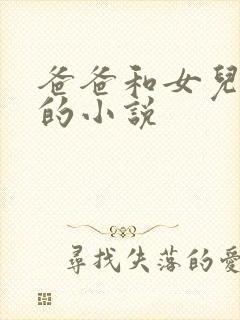 爸爸和女兒
的小說
尋找失落的愛